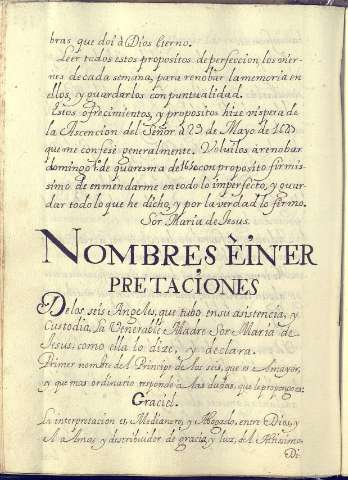 bras, que doi à Dios Eterno.
Leer todos estos propositos de perfeccion los vier-
nes de cada semana, para renobar la memoria en
ellos, y guardarlos con puntualidad.
Estos ofrecimientos, y propositos hize vispera de
la Ascencion del Señor à 25 de Mayo de
que me confesè generalmente. Volvilos à renobar
domingo 1º de quaresma de con proposito firmis-
simo de enmendarme en todo lo imperfecto, y guar-
dar todo lo que he dicho, y por la verdad lo firmo.
Sor Maria de Jesus.
NOMBRES È EINTER
PRETACIONES
De los seis Angeles, que tubo en su asistencia, y
Custodia, la Venerable Madre Sor Maria de
Jesus; como ella lo dize, y declara.
Primer nombre del Principe de los seis, que es el mayor,
y que mas ordinario responde à las dudas, que le propongo es:
Graciel.
La interpretacion es, Medianero, y Abogado, entre Dios, y
el Alma; y distribuidor de gracia, y luz, del Altissimo.
Di-